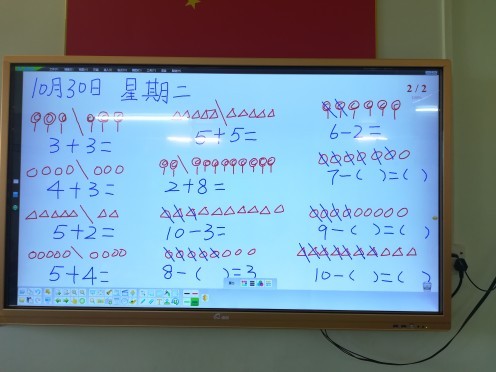 10月30日 星期二
2/2
3+3=
5+5=
6-2=
4+3=
2+8=
7-( )=( )
5+2=
10-3=
9-( )=( )
5+4=
8-( )=3
10-( )=( )